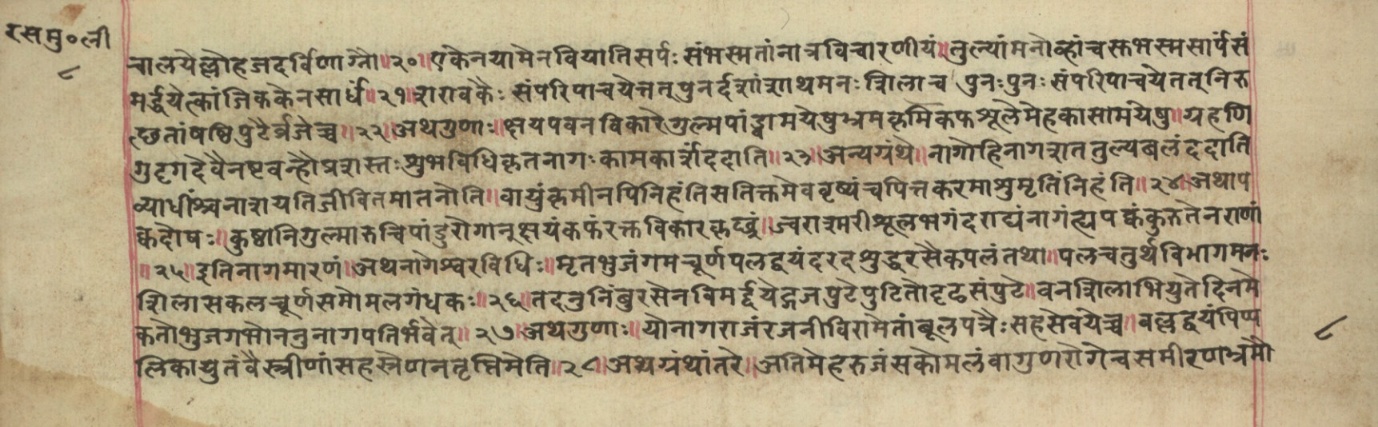 रसमु॰ली
८
चालयेल्लोहजदर्विणाग्नौ॥२०॥एकेनयामेनवियातिसर्पः संभस्मतांनात्रविचारणीयं॥तुल्यांमनोव्हांचस्तभस्मसार्पसं
मर्द्दयेत्कांजिककेनसार्धं॥२१॥शरावकैः संपरिपाचयेत्ततपुनर्दशांशाथमनःशिलाच पुनःपुनःसंपरिपाचयेततनिरु
त्छतांषष्ठिपुटैर्व्रजेच्च॥२२॥अथगुणाः॥क्षयपवनविकारेगुल्मपांड्वामयेषुभ्रमकृमिकफशूलेमेहकासामयेषु॥ग्रहणि
गुदगदेवैनष्टवन्हौप्रशस्तःशुभविधिकृतनागःकामकार्शंददाति॥२३॥अन्यग्रंथे॥नागोहिनागशततुल्यबलंददाति
व्याधींश्चनाशयतिजीवितमातनोति॥वायुंकृमीनपिनिहंतिसतिक्तमेववृष्यंचपित्तकरमाशुमृतिंनिहंति॥२४॥अथाप
क्वदोषः॥कुष्ठानिगुल्मारुचिपांडुरोगान्क्षयंकफंरक्तविकारकृछ्रं॥ज्वराश्मरीशूलभगंदराद्यंनागंत्वपक्वंकुरुतेनराणां
॥२५॥इतिनागमारणं॥अथनागेश्वरविधिः॥मृतभुजंगमचूर्णपलद्वयंदरदशुद्धरसैकपलंतथा॥पलचतुर्थविभागमनः
शिलासकलचूर्णसमोमलगंधकः॥२६॥तदनुनिंबुरसेनविमर्द्दयेद्गजपुटेपुटितोदृढसंपुटे॥वनशिलाभियुतेदिनमे
कतोभुजगमोननुनागपतिर्भवेत्॥२७॥अथगुणाः॥योनागराजंरजनीविरामेतांबूलपत्रैःसहसेवयेच्च॥वल्लद्वयंपिप्प
लिकायुतंवैस्त्रीणांसहस्रेणनतृप्तिमेति॥२८॥अथग्रंथांतरे॥अतिमेहरुजंसकोमलंवागुणरोगेचसमीरणभ्रमौ
८